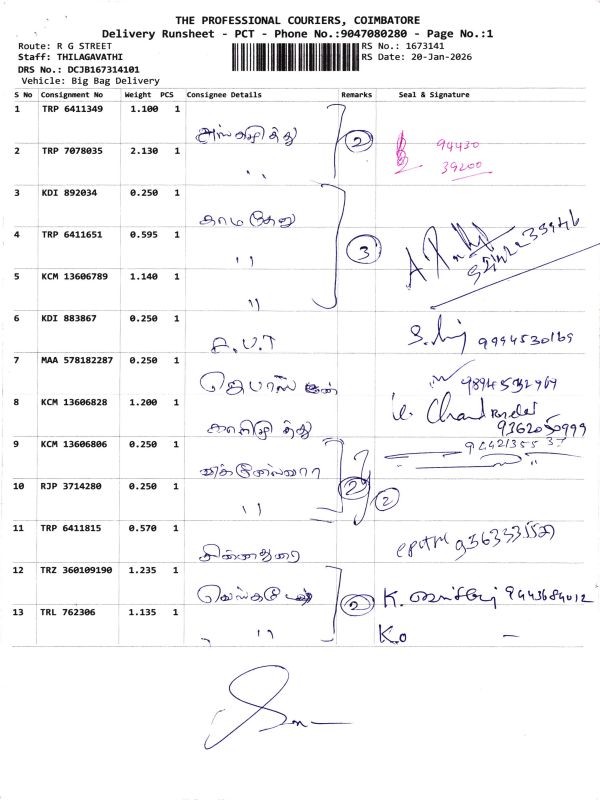 THE PROFESSIONAL COURIERS, COIMBATORE
Delivery Runsheet - PCT - Phone No.:9047080280 - Page No.:1
Route: R G STREET
RS No.: 1673141
Staff: THILAGAVATHI
RS Date: 20-Jan-2026
DRS No.: DCJB167314101
Vehicle: Big Bag Delivery
S No Consignment No Weight PCS Consignee Details Remarks Seal & Signature
1 TRP 6411349 1.100 1
2
94430
2 TRP 7078035 2.130 1
39200
" 
3 KDI 892034 0.250 1
காமதேனு
4 TRP 6411651 0.595 1
3
"
5 KCM 13606789 1.140 1
"
6 KDI 883867 0.250 1
9994530169
7 MAA 578182287 0.250 1
8 KCM 13606828 1.200 1
9362050999
9 KCM 13606806 0.250 1
10 RJP 3714280 0.250 1
2 2
"
11 TRP 6411815 0.570 1
சின்னதுரை
12 TRZ 360109190 1.235 1
2 K. 9443684012
13 TRL 762306 1.135 1
" K.o –